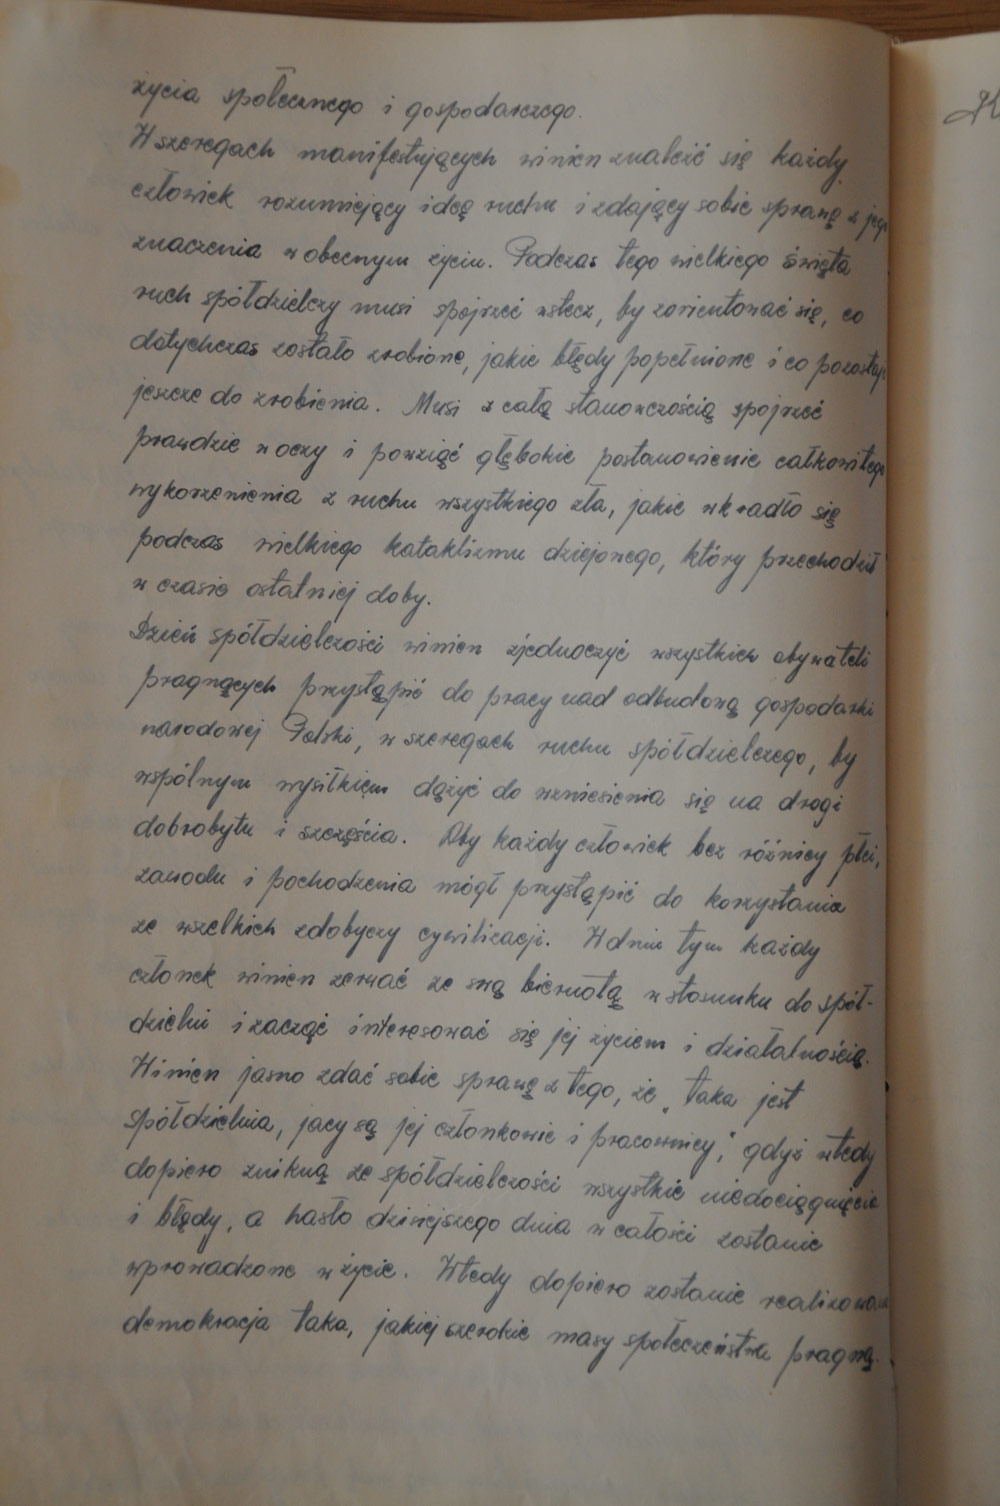 życia społecznego i gospodarczego.
W szeregach manifestujących winien znaleźć się każdy
człowiek rozumiejący ideę ruchu i zdający sobie sprawę z jego
znaczenia w obecnym życiu. Podczas tego wielkiego święta
ruch spółdzielczy musi spojrzeć wstecz, by zorientować się, co
dotychczas zostało zrobione, jakie błędy popełnione i co pozostaje
jeszcze do zrobienia. Musi z całą stanowczością spojrzeć
prawdzie w oczy i powziąć głębokie postanowienie całkowitego
wykorzenienia z ruchu wszystkiego zła, jakie wkradło się
podczas wielkiego kataklizmu dziejowego, który przechodził
w czasie ostatniej doby.
Dzień spółdzielczości winien zjednoczyć wszystkich obywateli
pragnących przystąpić do pracy nad odbudową gospodarki
narodowej Polski, w szeregach ruchu spółdzielczego, by
wspólnym wysiłkiem dążyć do wzniesienia się na drogi
dobrobytu i szczęścia. Aby każdy człowiek bez różnicy płci,
zawodu i pochodzenia mógł przystąpić do korzystania
ze wszelkich zdobyczy cywilizacji. W dniu tym każdy
członek winien zerwać ze swą biernotą w stosunku do spół-
dzielni i zacząć interesować się jej życiem i działalnością.
Winien jasno zdać sobie sprawę z tego, że „taka jest
spółdzielnia, jacy są jej członkowie i pracownicy," gdyż wtedy
dopiero znikną ze spółdzielczości wszystkie niedociągnięcia
i błędy, a hasło dzisiejszego dnia w całości zostanie
wprowadzone w życie. Wtedy dopiero zostanie realizowana
demokracja taka, jakiej szerokie masy społeczeństwa pragną.